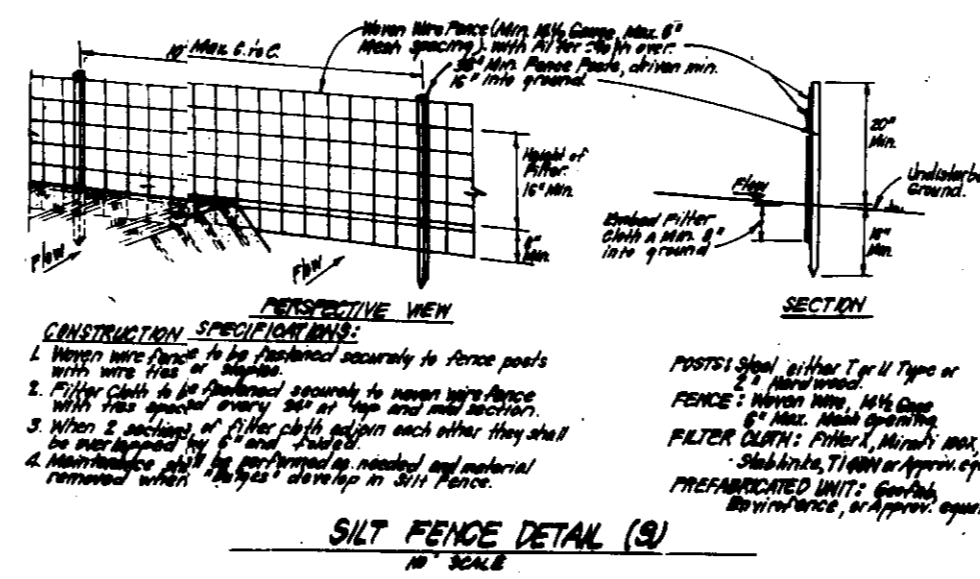 Woven Wire Fence (Min. 14½ Gauge, Max. 6"
Mesh spacing) with Filter Cloth over.
36" Min. Fence Posts, driven min.
16" into ground.
10' Max. C. to C.
Height of
Filter
16" Min.
8"
Min.
Flow
Flow
PERSPECTIVE VIEW
20"
Min.
Undisturbe
Ground.
Flow
Embed Filter
Cloth a Min. 8"
into ground
16"
Min.
SECTION
CONSTRUCTION SPECIFICATIONS:
1. Woven wire fence to be fastened securely to fence posts
with wire ties or staples.
2. Filter Cloth to be fastened securely to woven wire fence
with ties spaced every 24" at top and mid section.
3. When 2 sections of filter cloth adjoin each other they shall
be overlapped by 6" and folded.
4. Maintenance shall be performed as needed and material
removed when "Bulges" develop in Silt Fence.
POSTS: Steel either T or U Type or
2" Hardwood.
FENCE: Woven Wire, 14½ Gage
6" Max. Mesh Opening
FILTER CLOTH: Filter X, Mirafi 100X,
Stablinka, T140N or Approv. equ
PREFABRICATED UNIT: Geofab,
Envirofence, or Approv. equal
SILT FENCE DETAIL (S)
NO SCALE